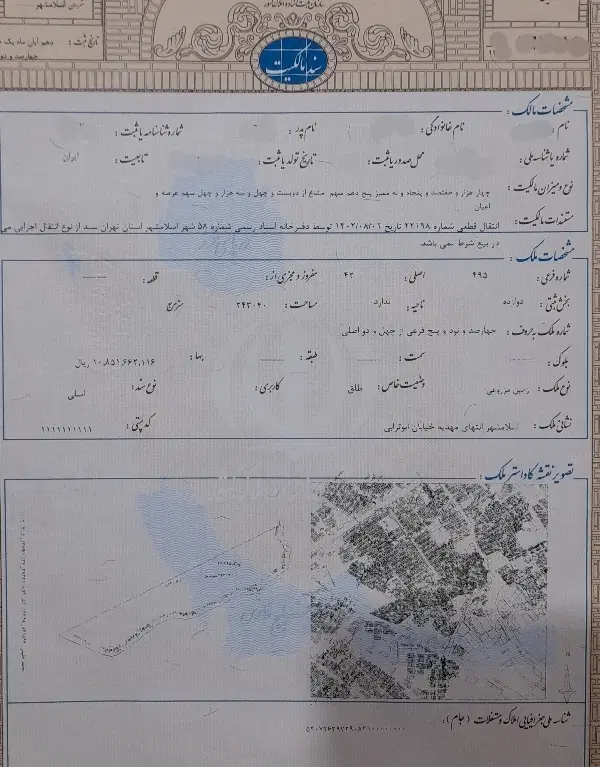 سازمان ثبت اسناد و املاک کشور
شهرستان اسلامشهر
تاریخ ثبت : دهم آبان ماه یک
چهارصد و دو
سند مالکیت
مشخصات مالک :
نام : نام خانوادگی : نام پدر : شماره شناسنامه یا ثبت :
شماره یا شناسه ملی : محل صدور یا ثبت : تاریخ تولد یا ثبت : تابعیت : ایران
نوع و میزان مالکیت : چهار هزار و هفتصد و پنجاه و نه ممیز پنج دهم سهم مشاع از دویست و چهل و سه هزار و چهل سهم عرصه و
اعیان
مستندات مالکیت : انتقال قطعی شماره ۲۲۰۹۸ تاریخ ۱۴۰۲/۰۸/۰۲ توسط دفترخانه اسناد رسمی شماره ۵۸ شهر اسلامشهر استان تهران سند از نوع انتقال اجرایی می
در بیع شرط نمی باشد
مشخصات ملک :
شماره فرعی : ۴۹۵ اصلی : ۴۲ مفروز و مجزی از : قطعه :
بخش ثبتی : دوازده ناحیه : ندارد مساحت : ۲۴۳۰۴۰ مترمربع
شماره ملک به حروف : چهارصد و نود و پنج فرعی از چهل و دو اصلی
بلوک : سمت : طبقه : بهاء : ۱۰,۸۵۱,۶۶۲,۱۱۶ ریال
نوع ملک : زمین مزروعی وضعیت خاص : طلق کاربری : نوع سند : اصلی
نشانی ملک : اسلامشهر انتهای مهدیه خیابان ابوترابی کد پستی : ۱۱۱۱۱۱۱۱۱۱
تصویر نقشه کاداستر ملک :
خلیج فارس
شناسه ملی جغرافیایی املاک و مستغلات (جام) :